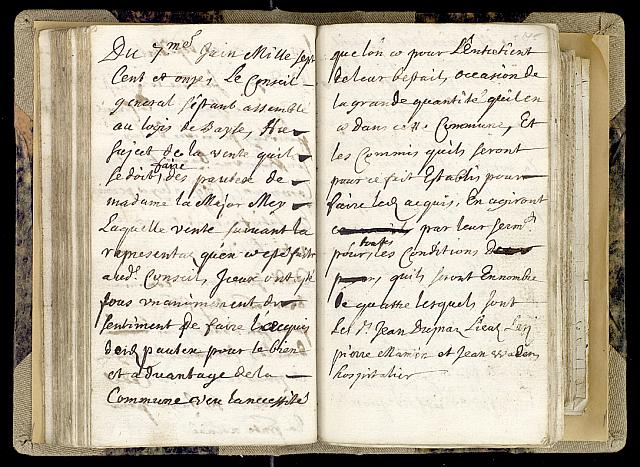 Du 7me Juin Mille sept
Cent et onze, Le Conseil
general s'estant assemblé
au logis de Bayle, Au
suject de la vente quil
faire
se doit, des pautex de
madame la Mejor Mey
Laquelle vente suivant la
representaon quen a esté faite
audt Conseil, Iceux ont esté
tous unanimement du
sentiment de faire lacquis
desd pautex pour le bien
et advantage de la
Commune veu la necessitté
que lon a pour L'Entretient
de leur bestail, occasion de
la grande quantité quil en
a dans cette Commune, Et
les Commis quils seront
pour ce fait Establis pour
faire led acquis, En agiront
par leur sermt
toutes
pour, les Conditions
quils seront En nombre
de quatre lesquels sont
Les Sr Jean
pierre Marin et Jean
hospitalier